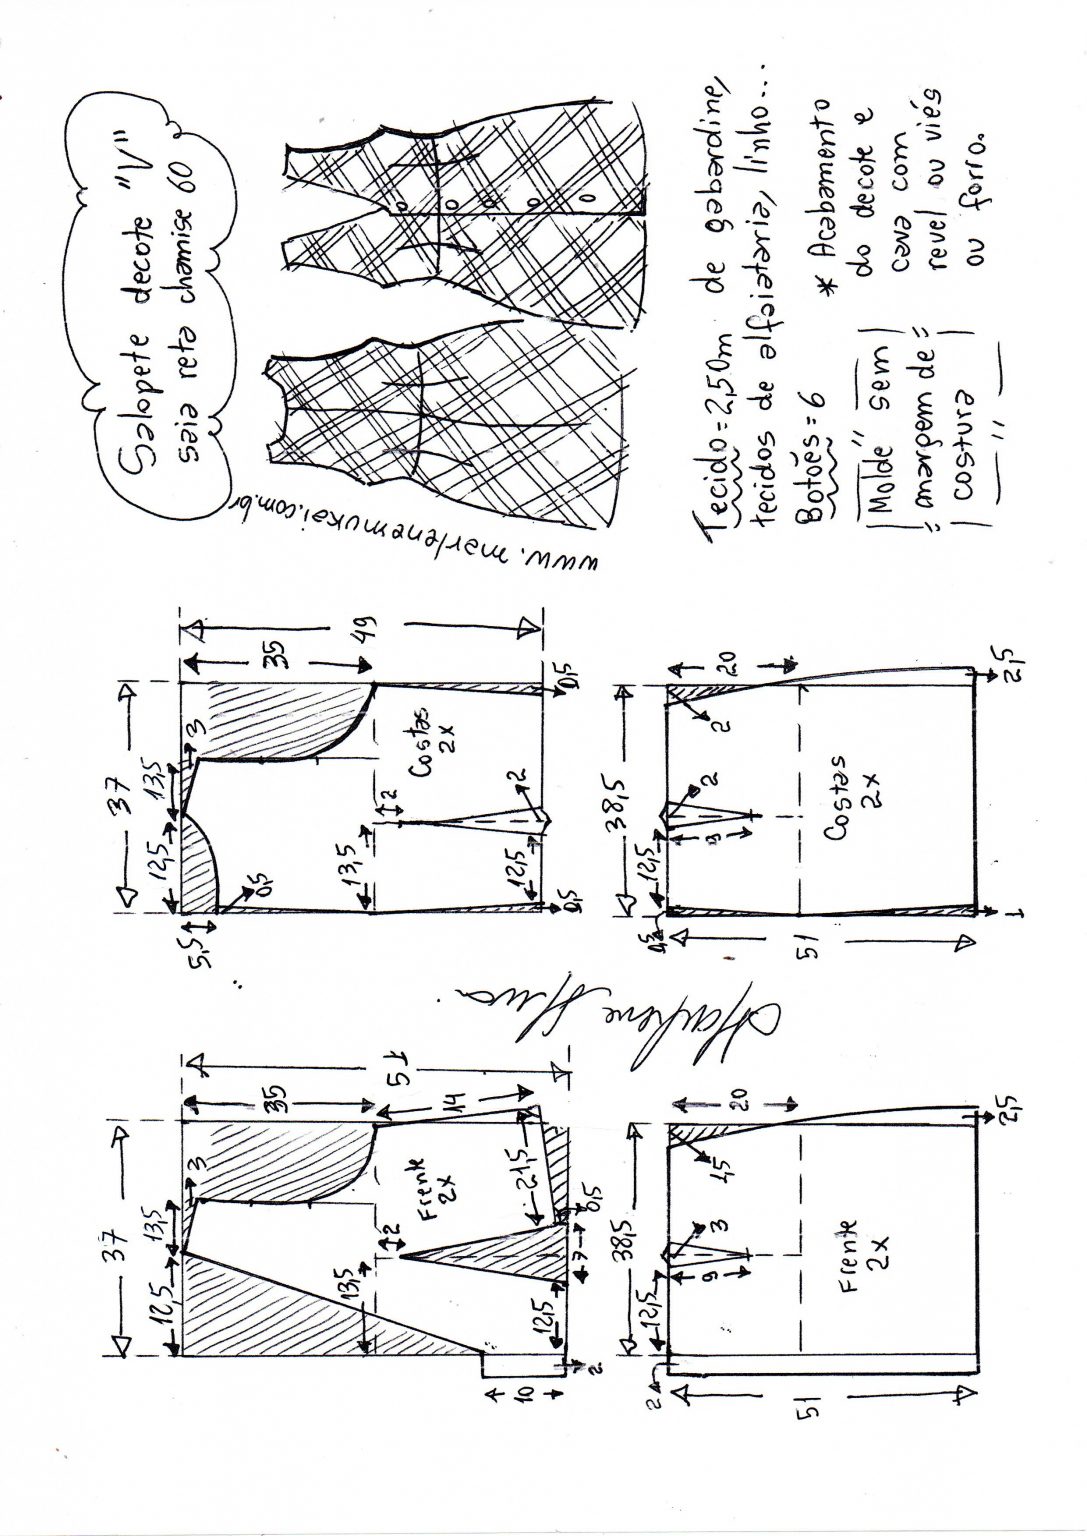 Salopete decote "V"
saia reta chamise 60
www.marlenemukai.com.br
Tecido = 2,50m de gabardine,
tecidos de alfaiataria, linho...
Botões = 6
* Acabamento
do decote e
cava com
revel ou viés
ou forro.
Molde sem
margem de
costura
37
12,5
13,5
3
35
49
5,5
0,5
13,5
2
Costas
2x
12,5
2
0,5
0,5
38,5
12,5
2
9
2
20
0,5
51
Costas
2x
1
2,5
Marlene Mukai
37
12,5
13,5
3
35
51
14
13,5
2
Frente
2x
21,5
10
12,5
7
0,5
2
38,5
12,5
3
9
1,5
20
2
51
Frente
2x
2,5